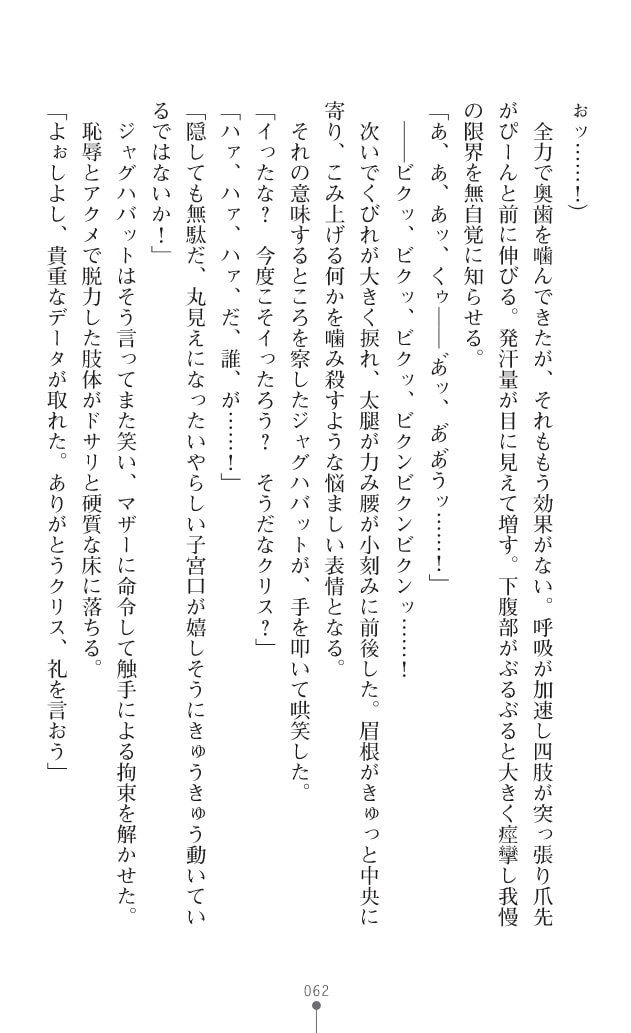 おッ……！）
　全力で奥歯を噛んできたが、それももう効果がない。呼吸が加速し四肢が突っ張り爪先
がぴーんと前に伸びる。発汗量が目に見えて増す。下腹部がぶるぶると大きく痙攣し我慢
の限界を無自覚に知らせる。
「あ、あ、あッ、くぅ――あ゙ッ、あ゙あ゙うッ……！」
　――ビクッ、ビクッ、ビクッ、ビクンビクンビクンッ……！
　次いでくびれが大きく捩れ、太腿が力み腰が小刻みに前後した。眉根がきゅっと中央に
寄り、こみ上げる何かを噛み殺すような悩ましい表情となる。
　それの意味するところを察したジャグハバットが、手を叩いて哄笑した。
「イったな？　今度こそイったろう？　そうだなクリス？」
「ハァ、ハァ、ハァ、だ、誰、が……！」
「隠しても無駄だ、丸見えになったいやらしい子宮口が嬉しそうにきゅうきゅう動いてい
るではないか！」
　ジャグハバットはそう言ってまた笑い、マザーに命令して触手による拘束を解かせた。
　恥辱とアクメで脱力した肢体がドサリと硬質な床に落ちる。
「よぉしよし、貴重なデータが取れた。ありがとうクリス、礼を言おう」
062